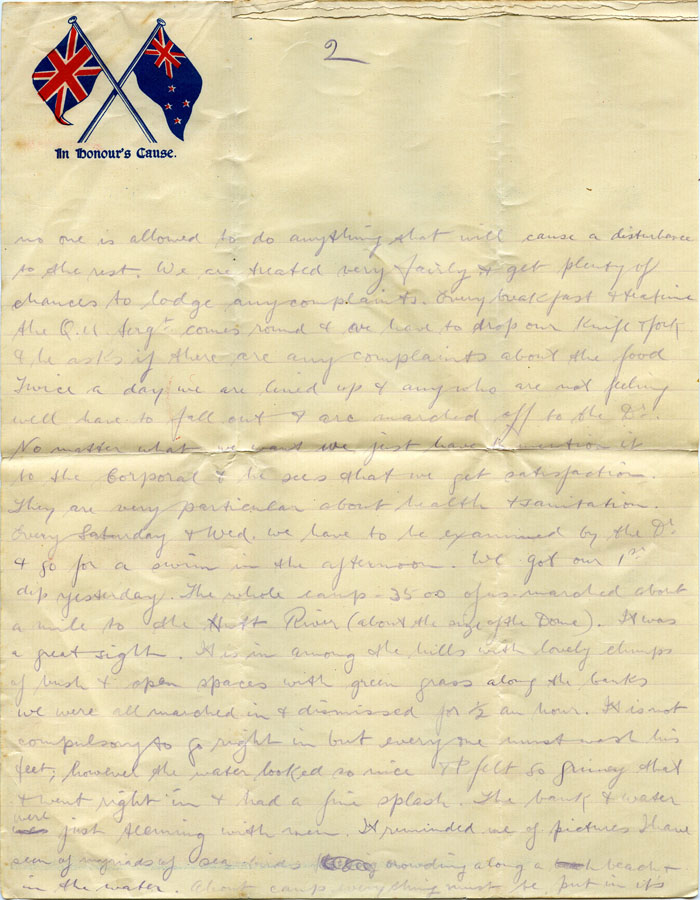 2
In Honour's Cause.
no one is allowed to do anything that will cause a disturbance
to the rest. We are treated very fairly & get plenty of
chances to lodge any complaints. Every breakfast & teatime
the Q.M. Sergt comes round & we have to drop our Knife & fork
& he asks if there are any complaints about the food
Twice a day we are lined up & any who are not feeling
well have to fall out & are marched off to the Dr.
No matter what we want we just have to mention it
to the Corporal & he sees that we get satisfaction.
They are very particular about health & sanitation.
Every Saturday & Wed. we have to be examined by the Dr
& go for a swim in the afternoon. We got our 1st
dip yesterday. The whole camp 3500 of us marched about
a mile to the Hutt River (about the size of the Dome). It was
a great sight. It is in among the hills with lovely clumps
of bush & open spaces with green grass along the banks
we were all marched in & dismissed for ½ an hour. It is not
compulsory to go right in but every one must wash his
feet; however the water looked so nice & I felt so grimey that
I went right in & had a fine splash. The bank & water
were just teeming with men. It reminded me of pictures I have
seen of myriads of sea birds crowding along a beach &
in the water. About camp everything must be put in its